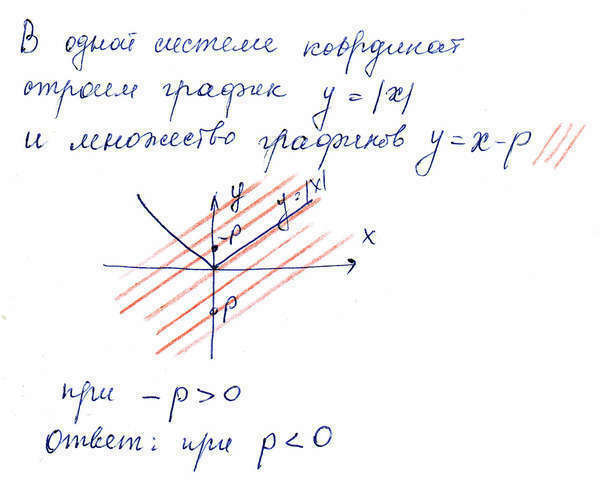 В одной системе координат
строим график y = |x|
и множество графиков y = x - p
y
y = |x|
-p
x
p
при - p > 0
Ответ: при p < 0